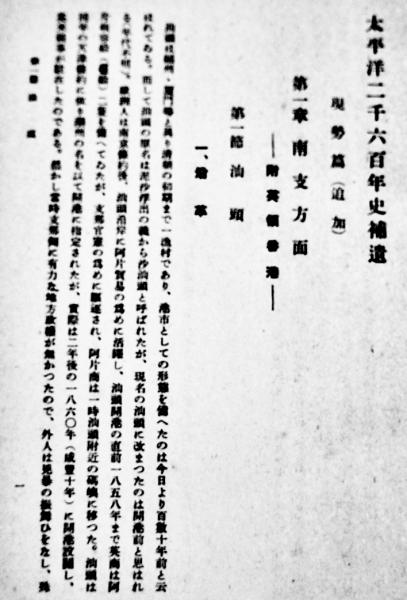 太平洋二千六百年史補遺
現勢篇（追加）
第一章 南支方面
――附英領香港――
第一節 汕頭
一、沿革
汕頭は潮州・厦門等と異り清朝の初期まで一漁村であり、港市としての形態を備へたのは今日より百數十年前と云
はれてゐる。而して汕頭の原名は泥沙浮出の義から沙汕頭と呼ばれたが、現名の汕頭に改まつたのは開港前と思はれ
る（年代不明）。歐洲人は南京條約後、汕頭沿岸に阿片貿易の爲めに活躍し、汕頭開港の直前一八五八年まで英商は阿
片 二隻を備へてゐたが、支那官憲の爲めに驅逐され、阿片商は一時汕頭附近の碼嶼に移つた。汕頭は
同年の天津條約に依り潮州の名を以て開港に指定されたが、實際は二年後の一八六〇年（咸豐十年）に開港設關し、
領事が設置したのである。然かし當時支那側に有力な地方政權が無かつたので、外人は兇暴の振舞ひをなし、殊
第一章
一